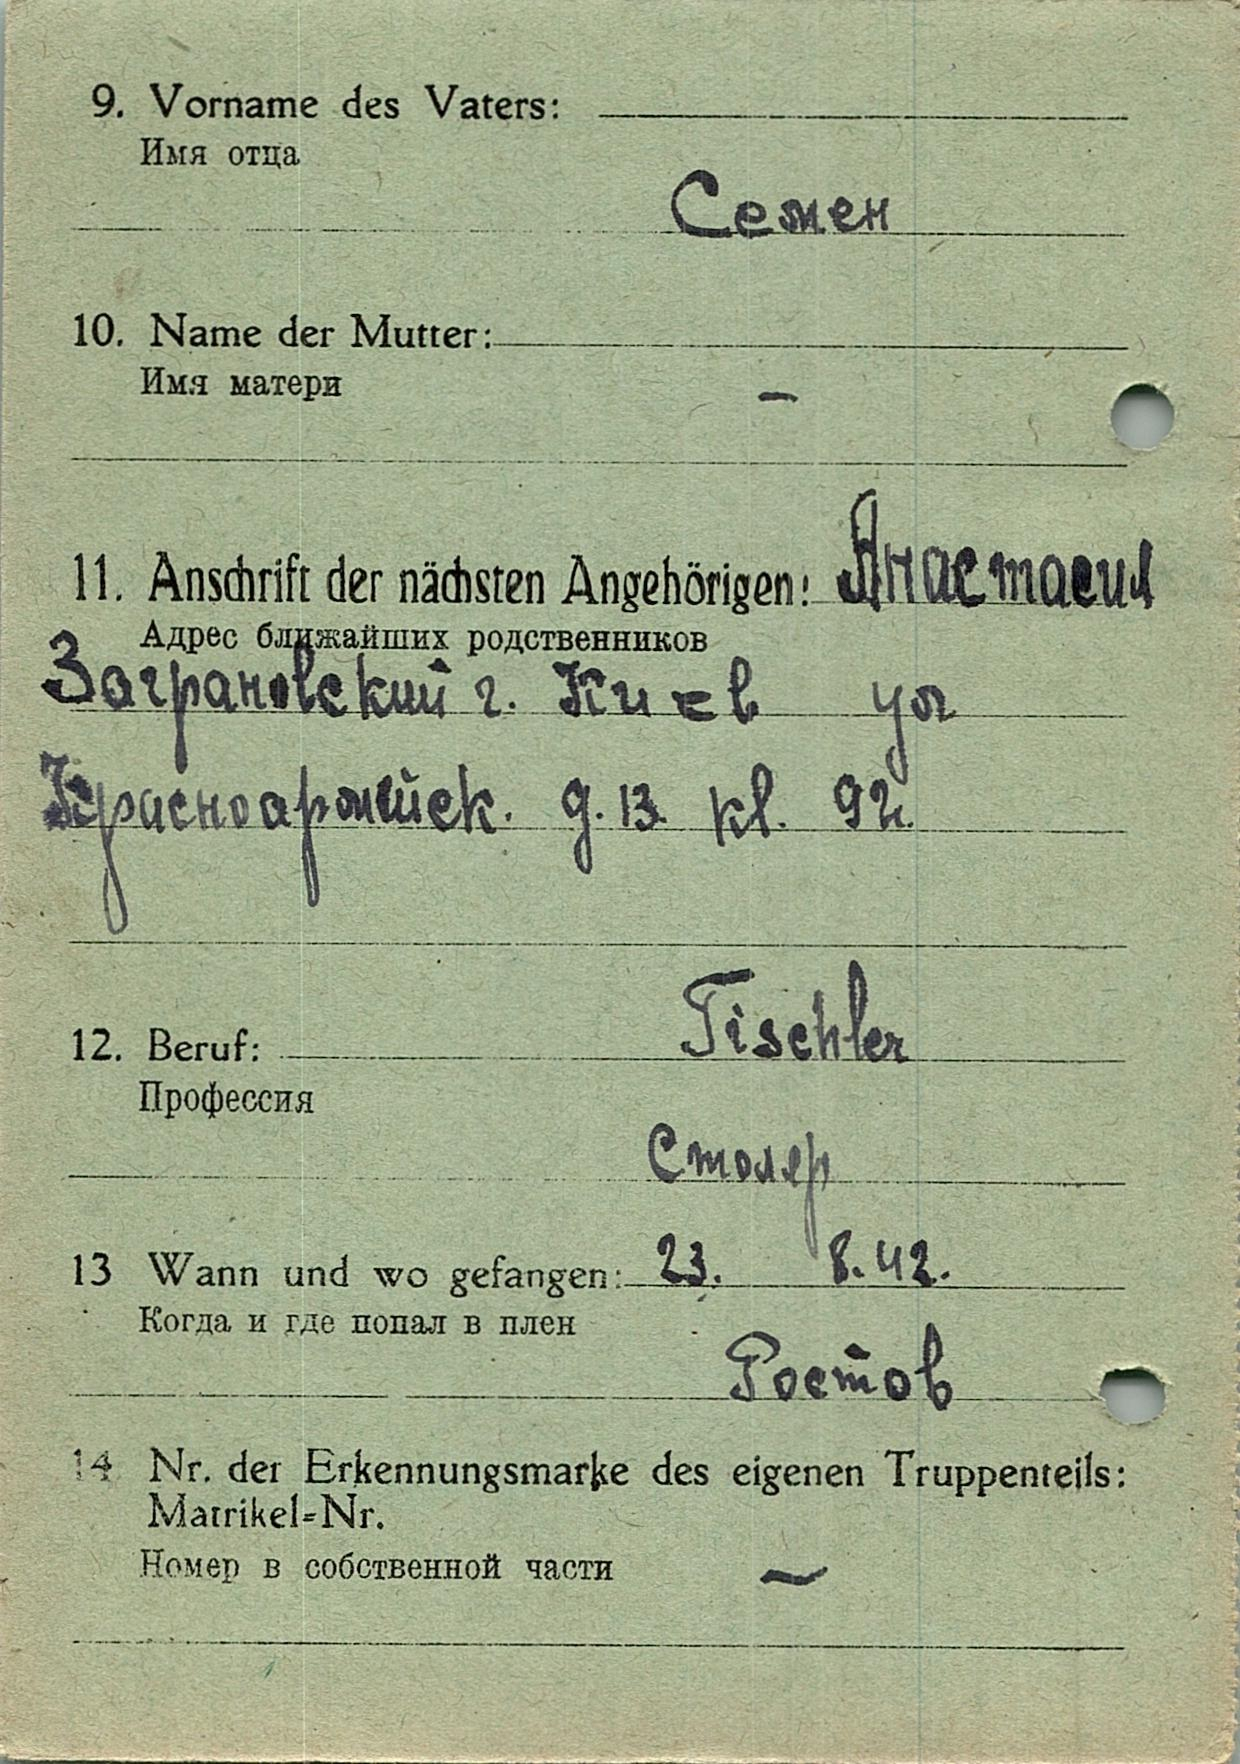 9. Vorname des Vaters:
Имя отца
Семен
10. Name der Mutter:
Имя матери
–
11. Anschrift der nächsten Angehörigen: Анастасия
Адрес ближайших родственников
Заграновский г. Киев ул
Красноармейск. д. 13. кв. 92.
12. Beruf: Tischler
Профессия
Столяр
13 Wann und wo gefangen: 23. 8.42.
Когда и где попал в плен
Ростов
14 Nr. der Erkennungsmarke des eigenen Truppenteils:
Matrikel=Nr.
Номер в собственной части –